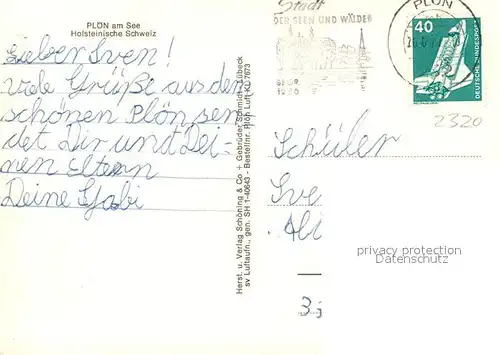 PLÖN am See
Holsteinische Schweiz
Lieber Sven!
viele Grüße aus dem
schönen Plön sen-
det Dir und Dei-
nen Eltern
Deine Gabi
Herst. u. Verlag Schöning & Co + Gebrüder Schmidt · Lübeck
sv Luftaufn., gen. SH 1-40643 - Bestellnr. Plön Luft KL 7673
Stadt
DER SEEN UND WÄLDER
1236
PLÖN
40
DEUTSCHE BUNDESPOST
2320
Schüler
Sve
Abi
3
privacy protection
Datenschutz